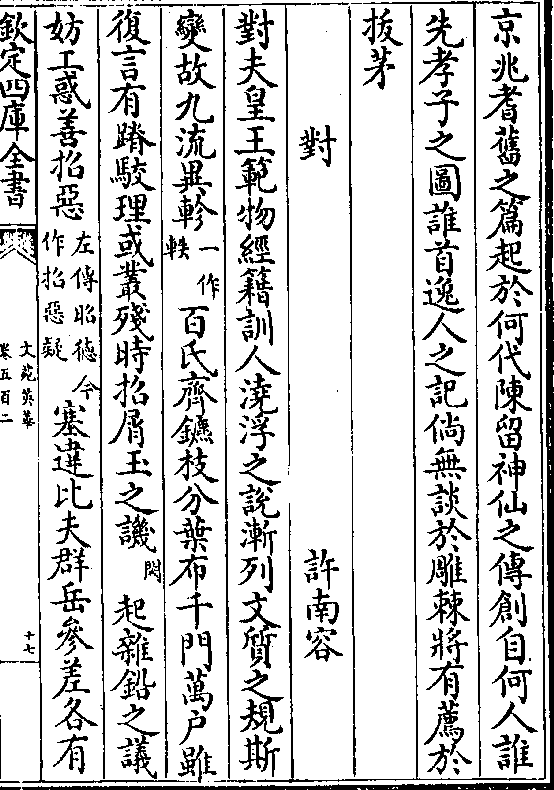 京兆耆舊之篇起於何代陳留神仙之傳創自何人誰
先孝子之圖誰首逸人之記倘無談於雕棘將有薦於
拔茅
對 許南容
對夫皇王範物經籍訓人澆浮之說漸列文質之規斯
變故九流異軫一作軼百氏齊鑣枝分葉布千門萬戶雖
復言有踳駮理或叢殘時招屑玉之譏閃起雜鉛之議
妨工惑善招惡左傳昭德今作招惡疑塞違比夫群岳參差各有
欽定四庫全書
文苑英華
卷五百二
十七